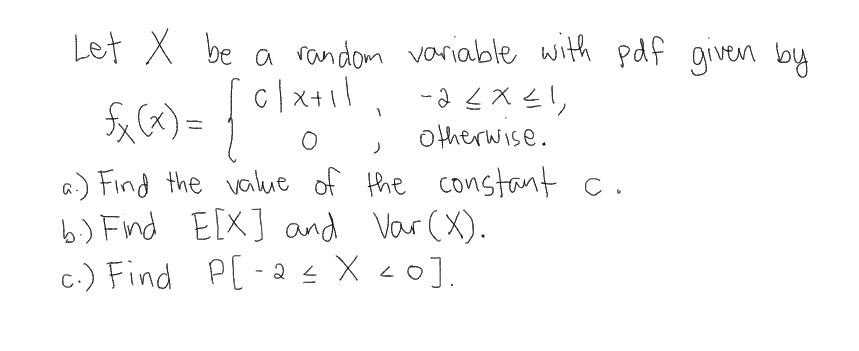 Let X be a random variable with pdf given by
f_X(x) = { c|x+1| , -2 ≤ x ≤ 1,
0 , otherwise.
a.) Find the value of the constant c.
b.) Find E[X] and Var(X).
c.) Find P[-2 ≤ X < 0].